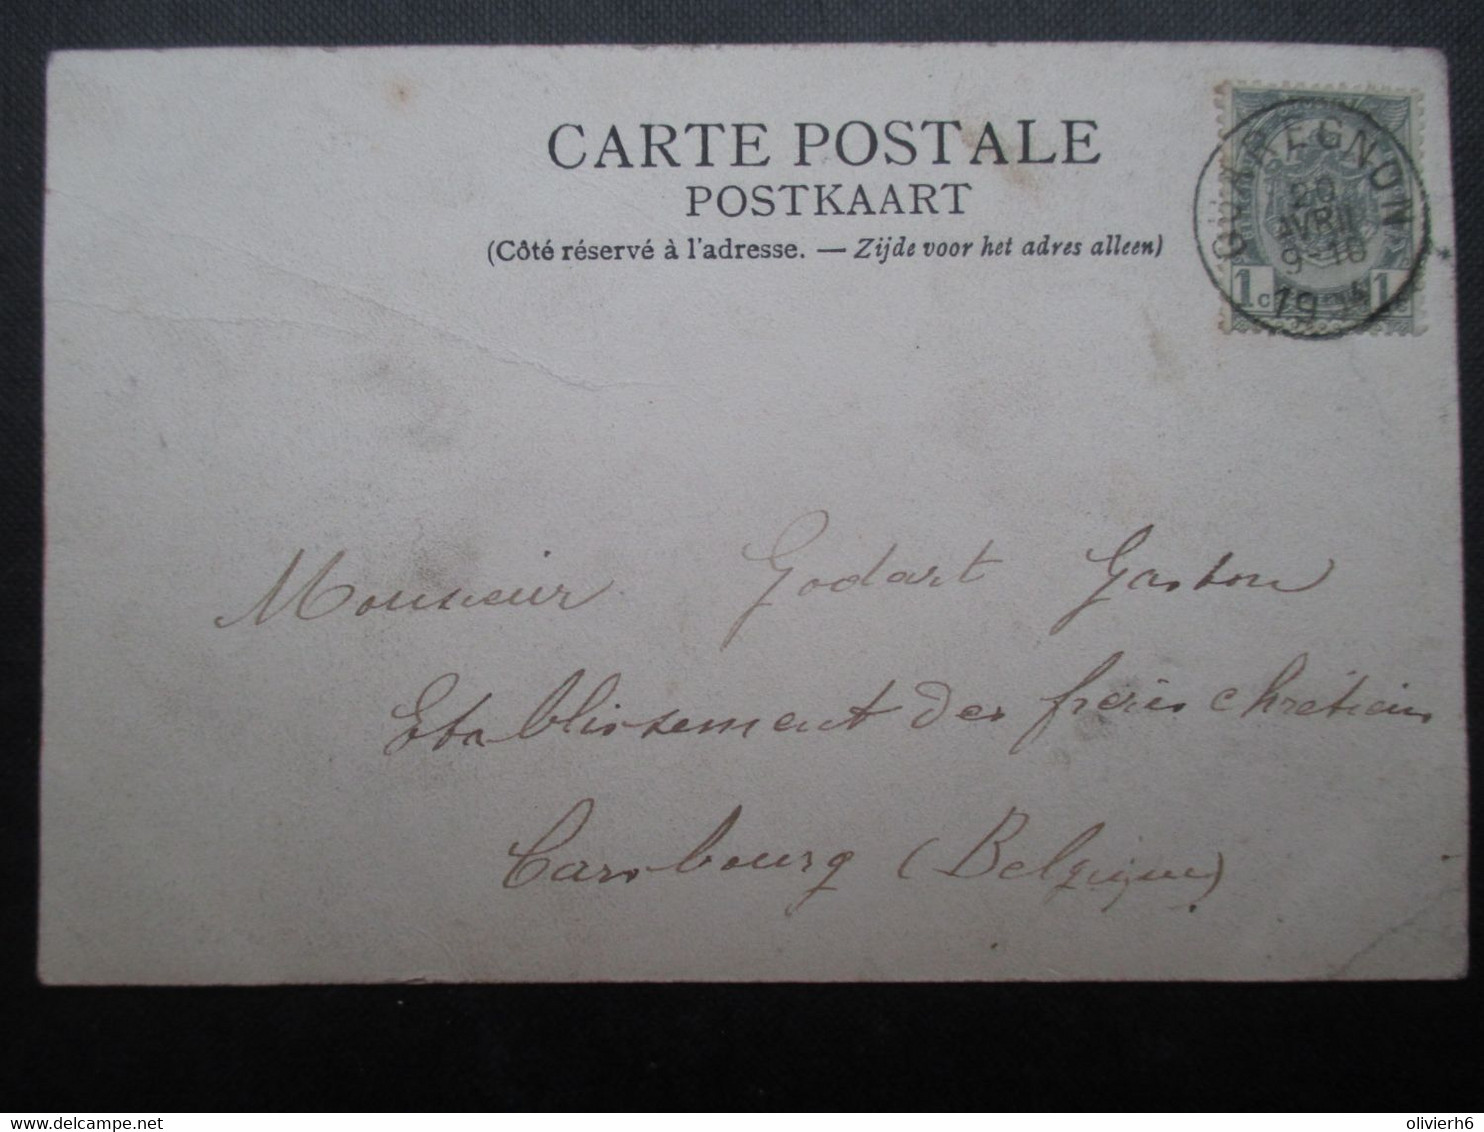 CARTE POSTALE
POSTKAART
(Côté réservé à l'adresse. — Zijde voor het adres alleen)
QUAREGNON
20
AVRIL
9-10
19
1c 1c
Monsieur Godart Gaston
Etablissement des frères chrétiens
Carlsbourg (Belgique)
www.delcampe.net
olivierh6